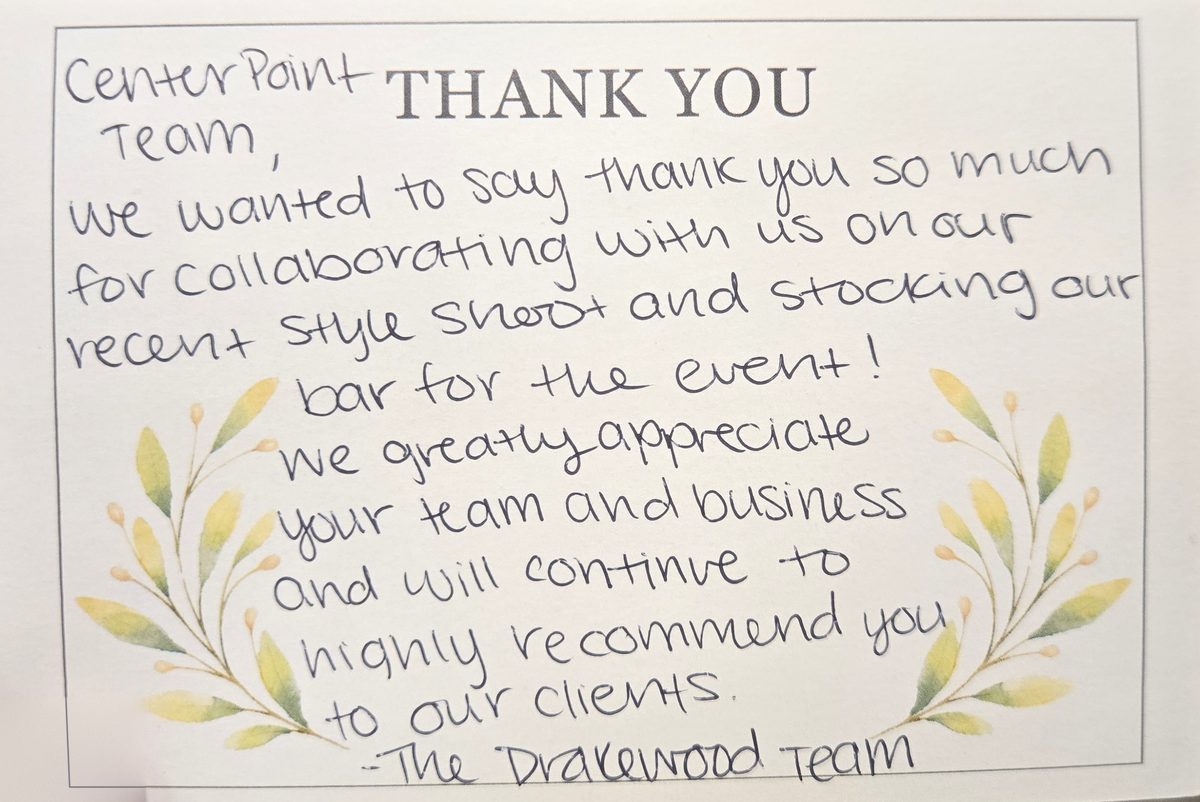 Center Point THANK YOU
Team,
We wanted to say thank you so much
for collaborating with us on our
recent style shoot and stocking our
bar for the event!
We greatly appreciate
your team and business
and will continue to
highly recommend you
to our clients.
-The Drakewood Team